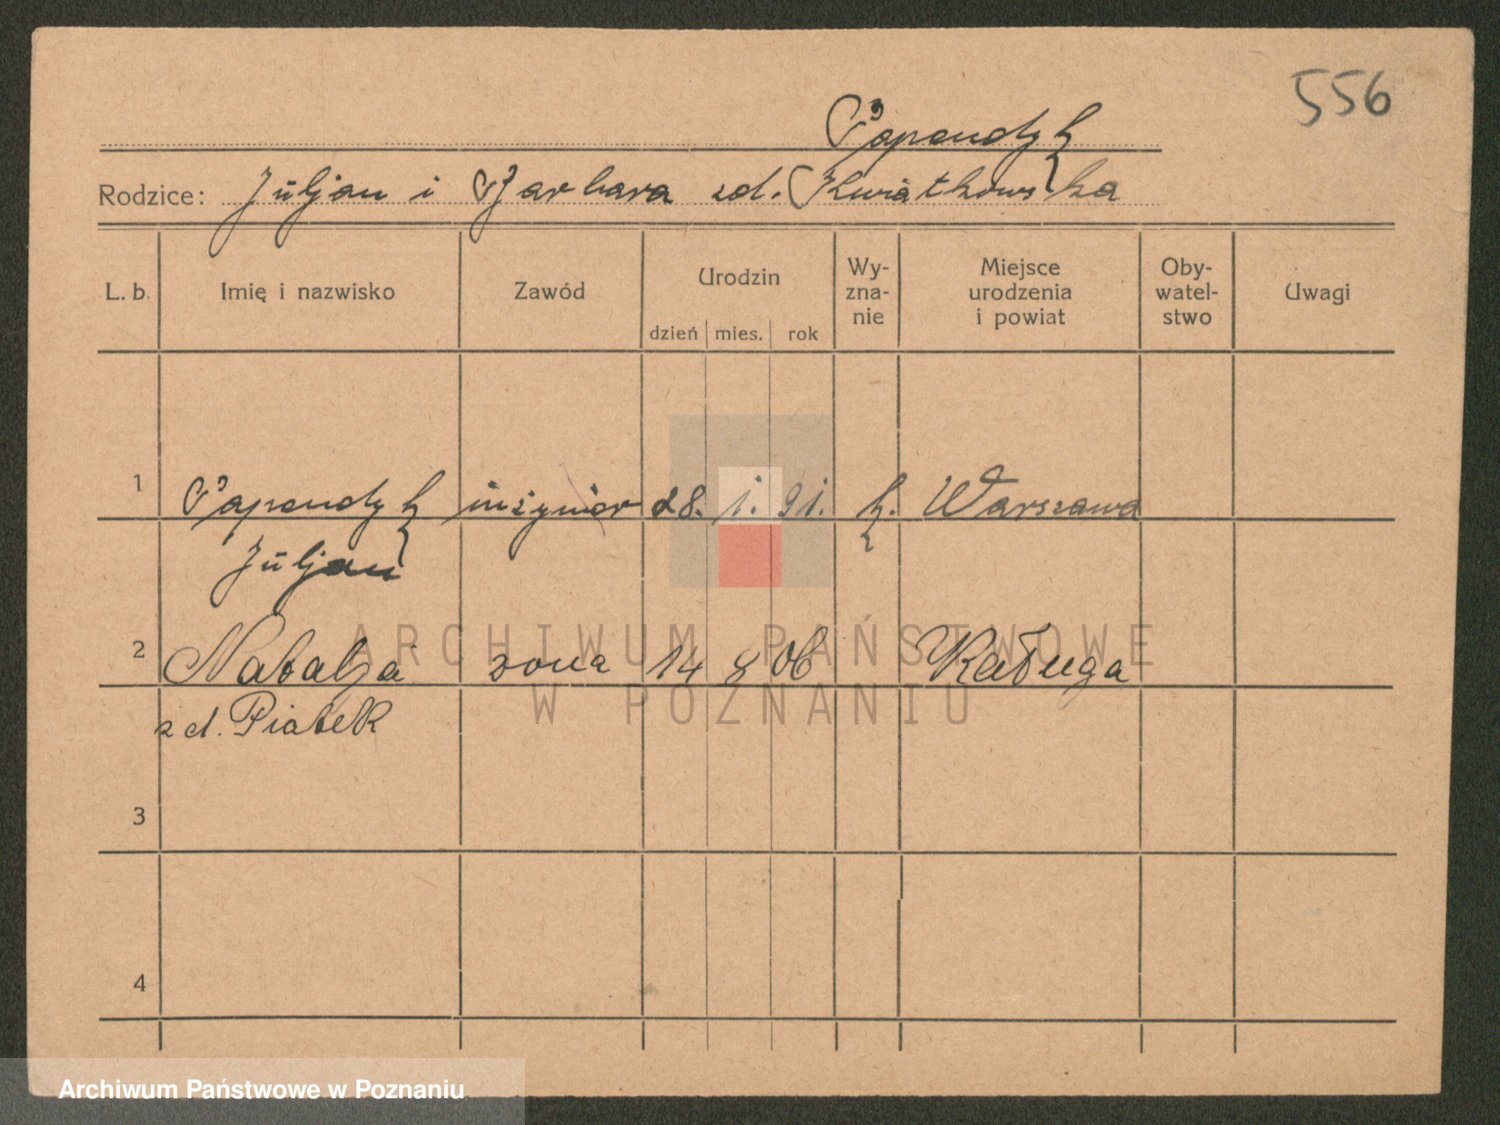 556
Papendyk
Rodzice: Juljan i Barbara zd. Kwiatkowska
L. b. Imię i nazwisko Zawód Urodzin dzień mies. rok Wy-zna-nie Miejsce urodzenia i powiat Oby-watel-stwo Uwagi
1 Papendyk inżynier 28. 1. 91. k. Warszawa
Juljan
2 Natalja żona 14 8 06 Kaługa
zd. Piatek
3
4
ARCHIWUM PAŃSTWOWE
W POZNANIU
Archiwum Państwowe w Poznaniu